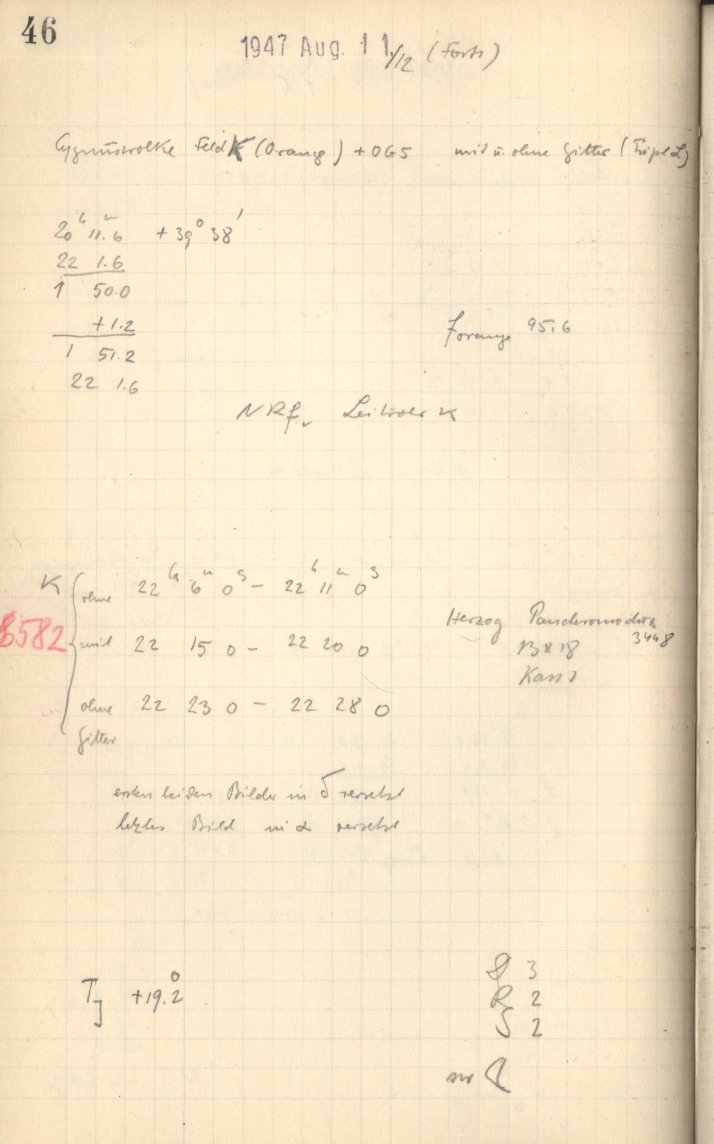 46
1947 Aug. 11/12 (Forts)
Cygnuswolke Feld K (Orange) + OG5 mit u. ohne Gitter (Tripel L)
20ʰ 11.6ᵐ +39° 38'
22 1.6
1 50.0
+1.2
1 51.2
22 1.6
f orange 95,6
NRf, Leitrohr K
K
ohne 22ʰ 6ᵐ 0ˢ – 22ʰ 11ᵐ 0ˢ
8582 mit 22 15 0 – 22 20 0
ohne 22 23 0 – 22 28 0
Gitter
Herzog Panchromodux
3448
13 x 18
Kass 1
ersten beiden Bilder in δ versetzt
letztes Bild in α versetzt
T_J +19.2°
3
R 2
S 2